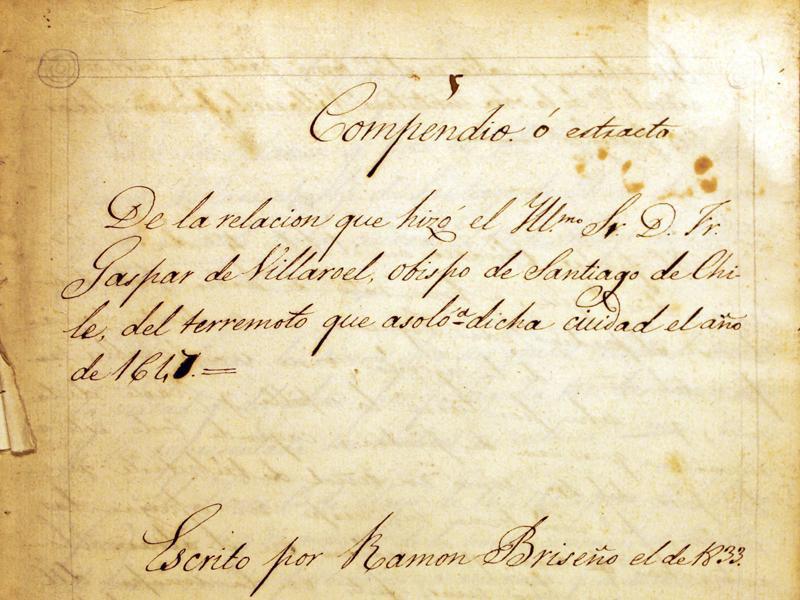 Compéndio. ó estracto
De la relacion que hizó el Ill.mo Sr. D. Fr.
Gaspar de Villaroel, obispo de Santiago de Chi-
le, del terremoto que asoló a dicha ciuidad el año
de 1647.=
Escrito por Ramon Briseño el de 1833.